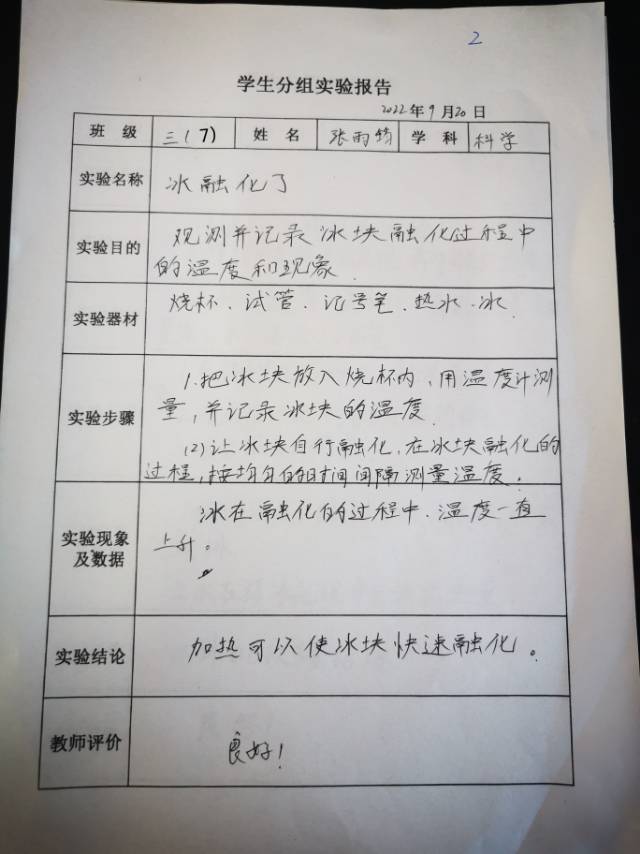 2
学生分组实验报告
2022年9月20日
班 级 三(7) 姓 名 张雨 学 科 科学
实验名称 冰融化了
实验目的 观测并记录冰块融化过程中
的温度和现象.
实验器材 烧杯、试管、记号笔、热水、冰.
实验步骤 1.把冰块放入烧杯内,用温度计测
量,并记录冰块的温度.
(2)让冰块自行融化,在冰块融化的
过程,按均匀的时间间隔测量温度.
实验现象
及数据 冰在融化的过程中.温度一直
上升。
实验结论 加热可以使冰块快速融化。
教师评价 良好!